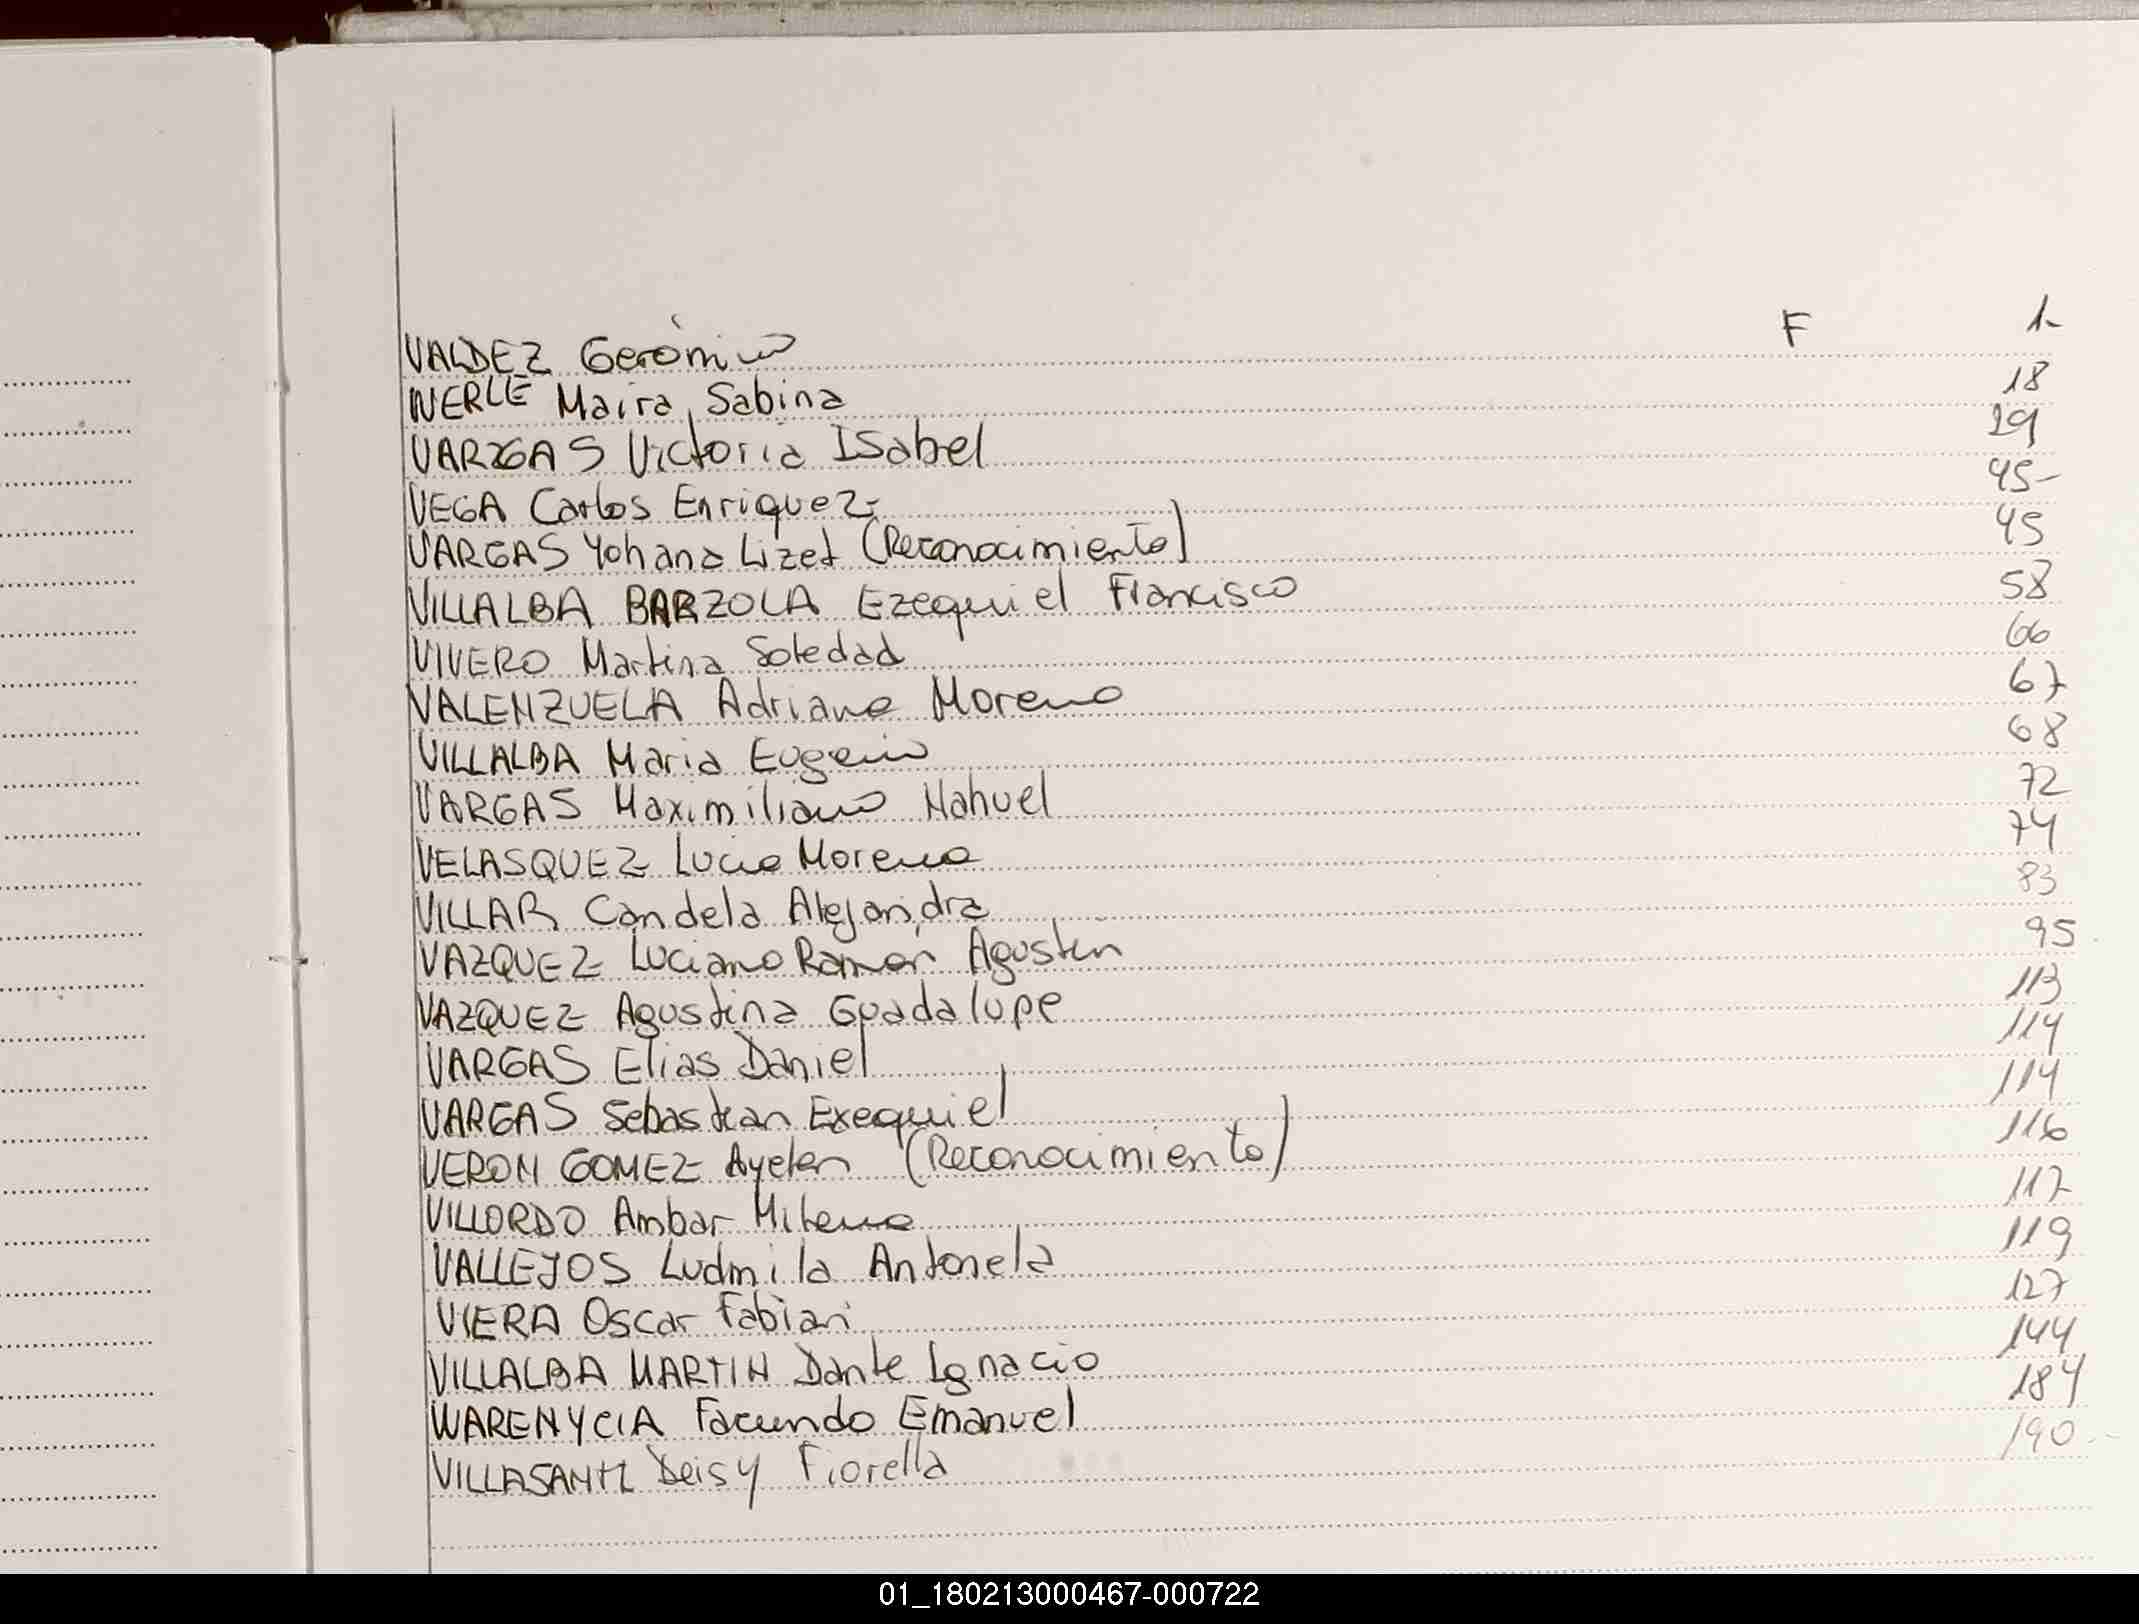 VALDEZ Gerónimo F 1-
WERLE Maira Sabina 18
VARGAS Victoria ISabel 29
VEGA Carlos Enriquez- 45-
VARGAS Yohana Lizet (Reconocimiento) 45
VILLALBA BARZOLA Ezequiel Francisco 58
VIVERO Martina Soledad 66
VALENZUELA Adriano Moreno 67
VILLALBA Maria Eugenia 68
VARGAS Maximiliano Nahuel 72
VELASQUEZ Moreno 74
VILLAR Candela Alejandra 83
VAZQUEZ Luciano Ramón Agustin 95
VAZQUEZ Agustina Guadalupe 113
VARGAS Elias Daniel 114
VARGAS Sebastian Exequiel 114
VERON GOMEZ Ayelen (Reconocimiento) 116
VILLORDO Ambar Milena 117
VALLEJOS Ludmila Antonela 119
VIERA Oscar Fabian 127
VILLALBA MARTIN Dante Ignacio 144
WARENYCIA Facundo Emanuel 184
VILLASANTI Deisy Fiorella 190-
01_180213000467-000722